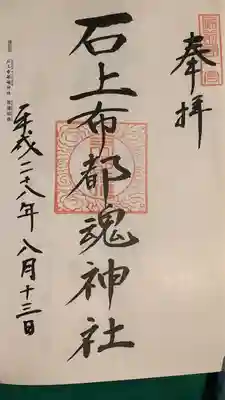 奉拝
石上布都魂神社
平成二十八年八月十三日